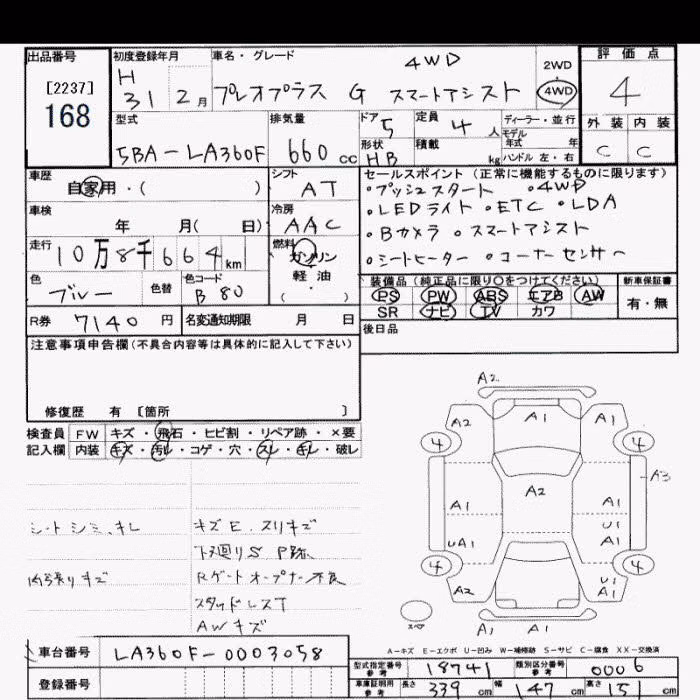 出品番号
[2237]
168
初度登録年月
H 31 2月
車名・グレード
4WD
プレオプラス G スマートアシスト
2WD
4WD
評価点
4
外装 内装
C C
型式
5BA-LA360F
排気量
660 cc
ドア 5
定員 4 人
ディーラー・並行
モデル
年式 年
ハンドル 左・右
形状 HB
積載 kg
車歴
自家用・( )
シフト
AT
車検
年 月( 日)
冷房
AAC
走行
10万8千664km
燃料
ガソリン
軽・油
( )
色
ブルー
色替
色コード
B80
R券 7140 円
名変通知期限 月 日
セールスポイント(正常に機能するものに限ります)
・プッシュスタート ・4WD
・LEDライト ・ETC ・LDA
・Bカメラ ・スマートアシスト
・シートヒーター ・コーナーセンサー
装備品(純正品に限り○をつけてください)
PS PW ABS エアB AW
SR ナビ TV カワ
新車保証書
有・無
後日品
注意事項申告欄(不具合内容等は具体的に記入して下さい)
修復歴 有 [箇所 ]
検査員 FW キズ・飛石・ヒビ割・リペア跡・×要
記入欄 内装 キズ・汚レ・コゲ・穴・スレ・キレ・破レ
シートシミ、キレ
内張りキズ
キズE、スリキズ
下廻りS P跡
Rゲートオープナー不良
スタッドレスT
AWキズ
A2
A2 A1 A1
4 4
A3
A2
A1 A1
U1
UA1 A1
4 4
A2 U1
A1
A1 A1
スペア
A-キズ E-エクボ U-凹み W-補修跡 S-サビ C-腐食 XX-交換済
車台番号 LA360F-0003058
登録番号
型式指定番号
参考
18741
類別区分番号
参考
0006
車庫証明用
参考
長さ 339 cm 幅 147 cm 高さ 151 cm